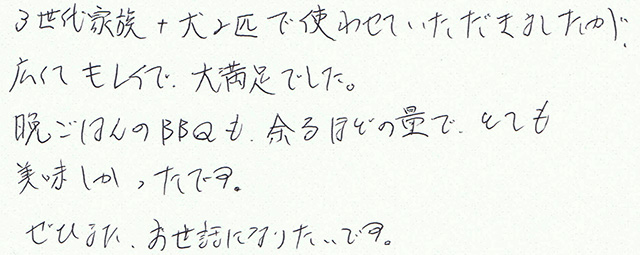 3世代家族+犬2匹で使わせていただきましたが、
広くてキレイで、大満足でした。
晩ごはんのBBQも、余るほどの量で、とても
美味しかったです。
ぜひまた、お世話になりたいです。